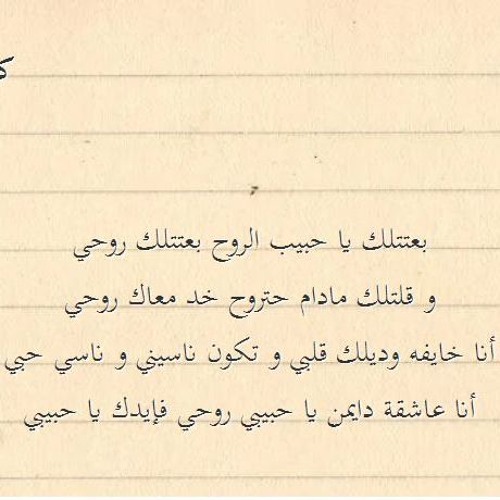 بعتتلك يا حبيب الروح بعتتلك روحي
و قلتلك مادام حتروح خد معاك روحي
أنا خايفه وديلك قلبي و تكون ناسيني و ناسي حبي
أنا عاشقة دايمن يا حبيبي روحي فإيدك يا حبيبي